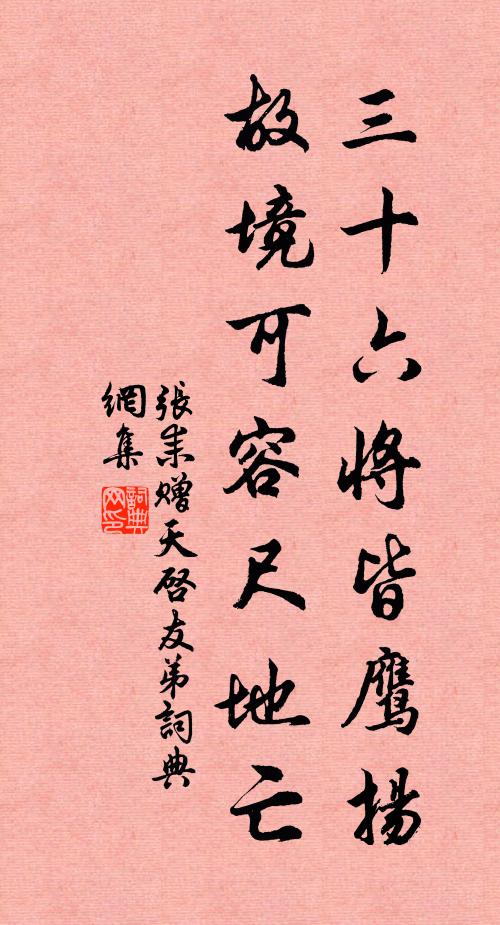 三十六將皆鷹揚
故境可容尺地亡
張耒贈天啓友弟詞典
網集
詞典網印